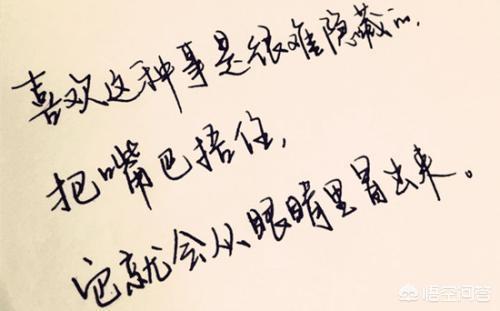 喜欢这种事是很难隐藏的,
把嘴巴捂住,
它就会从眼睛里冒出来。
悟空问答